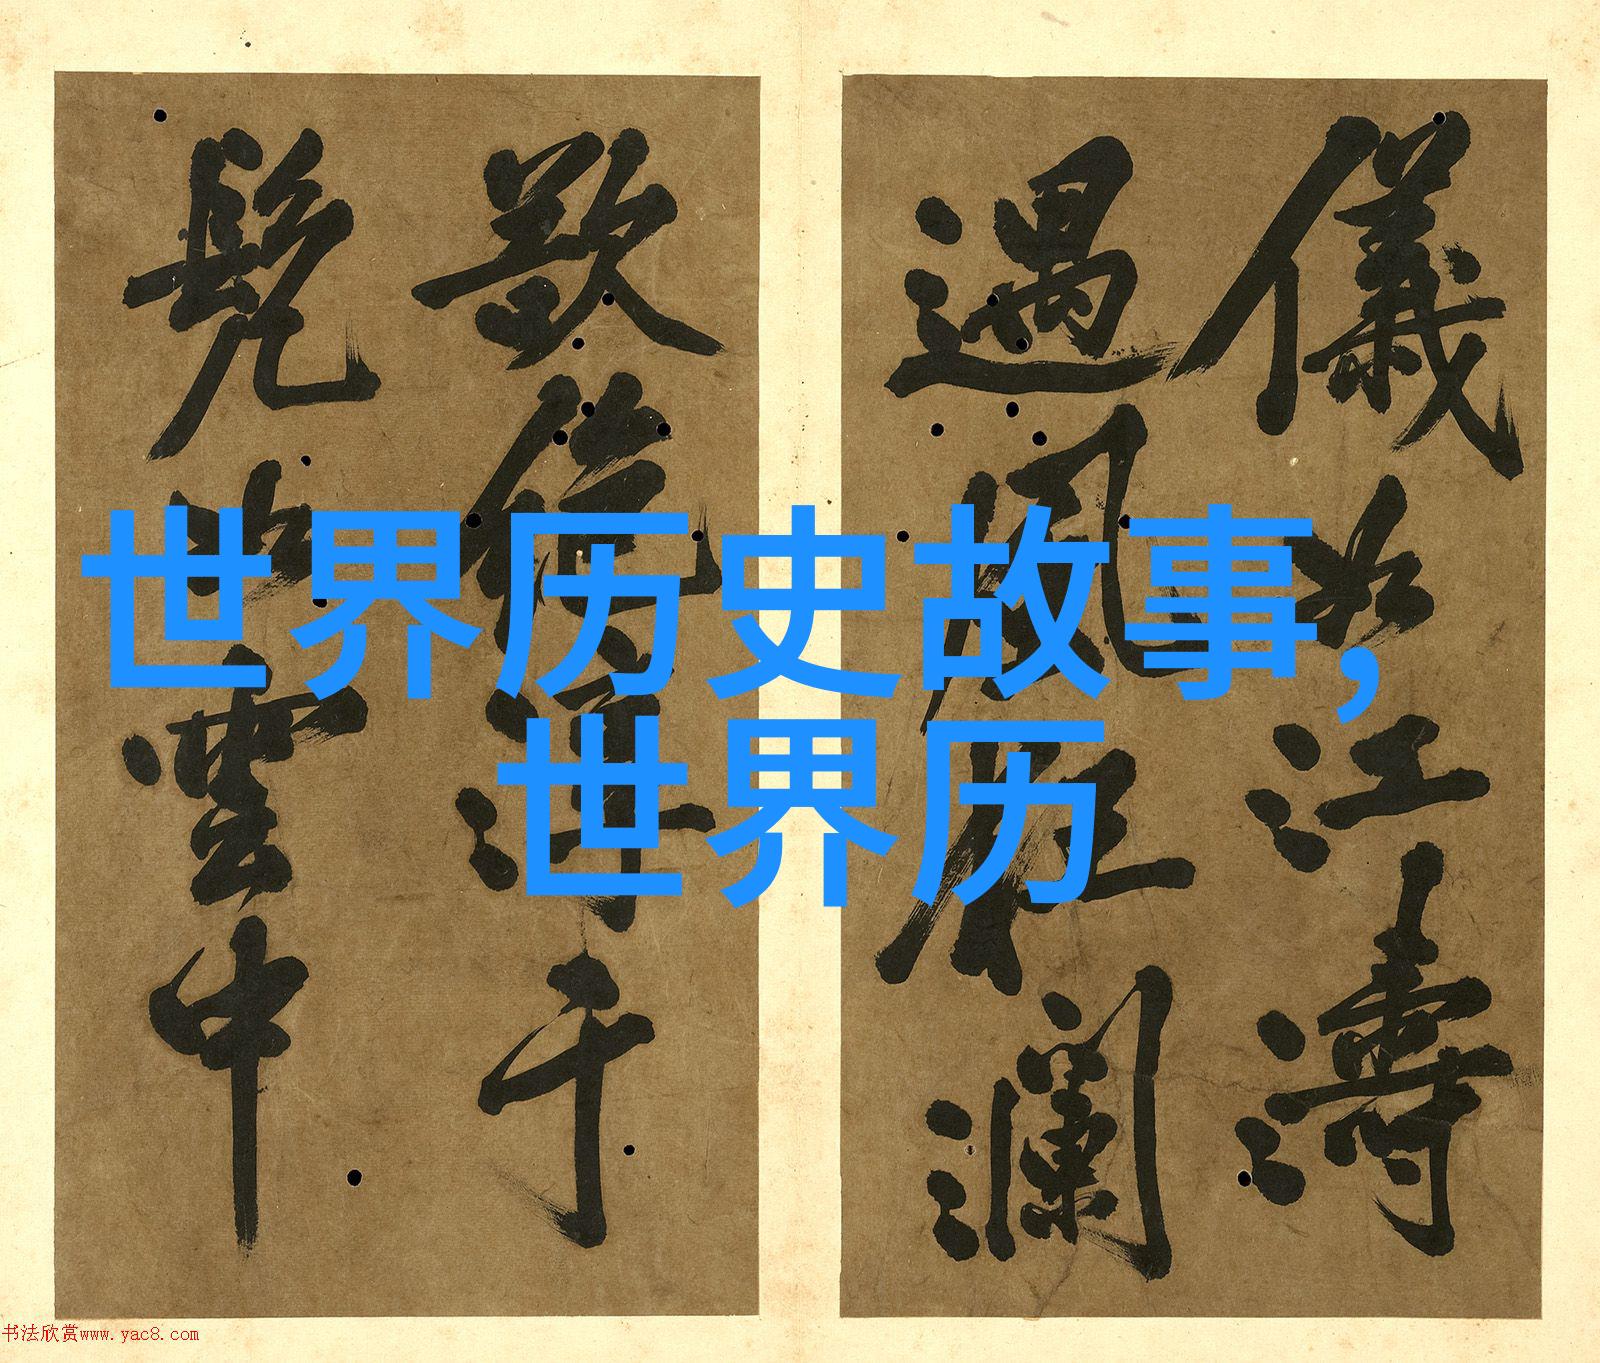 世界历史故事,
世界历
儀如江濤
風狂瀾
于
如雲中
书法欣赏www.yac8.com